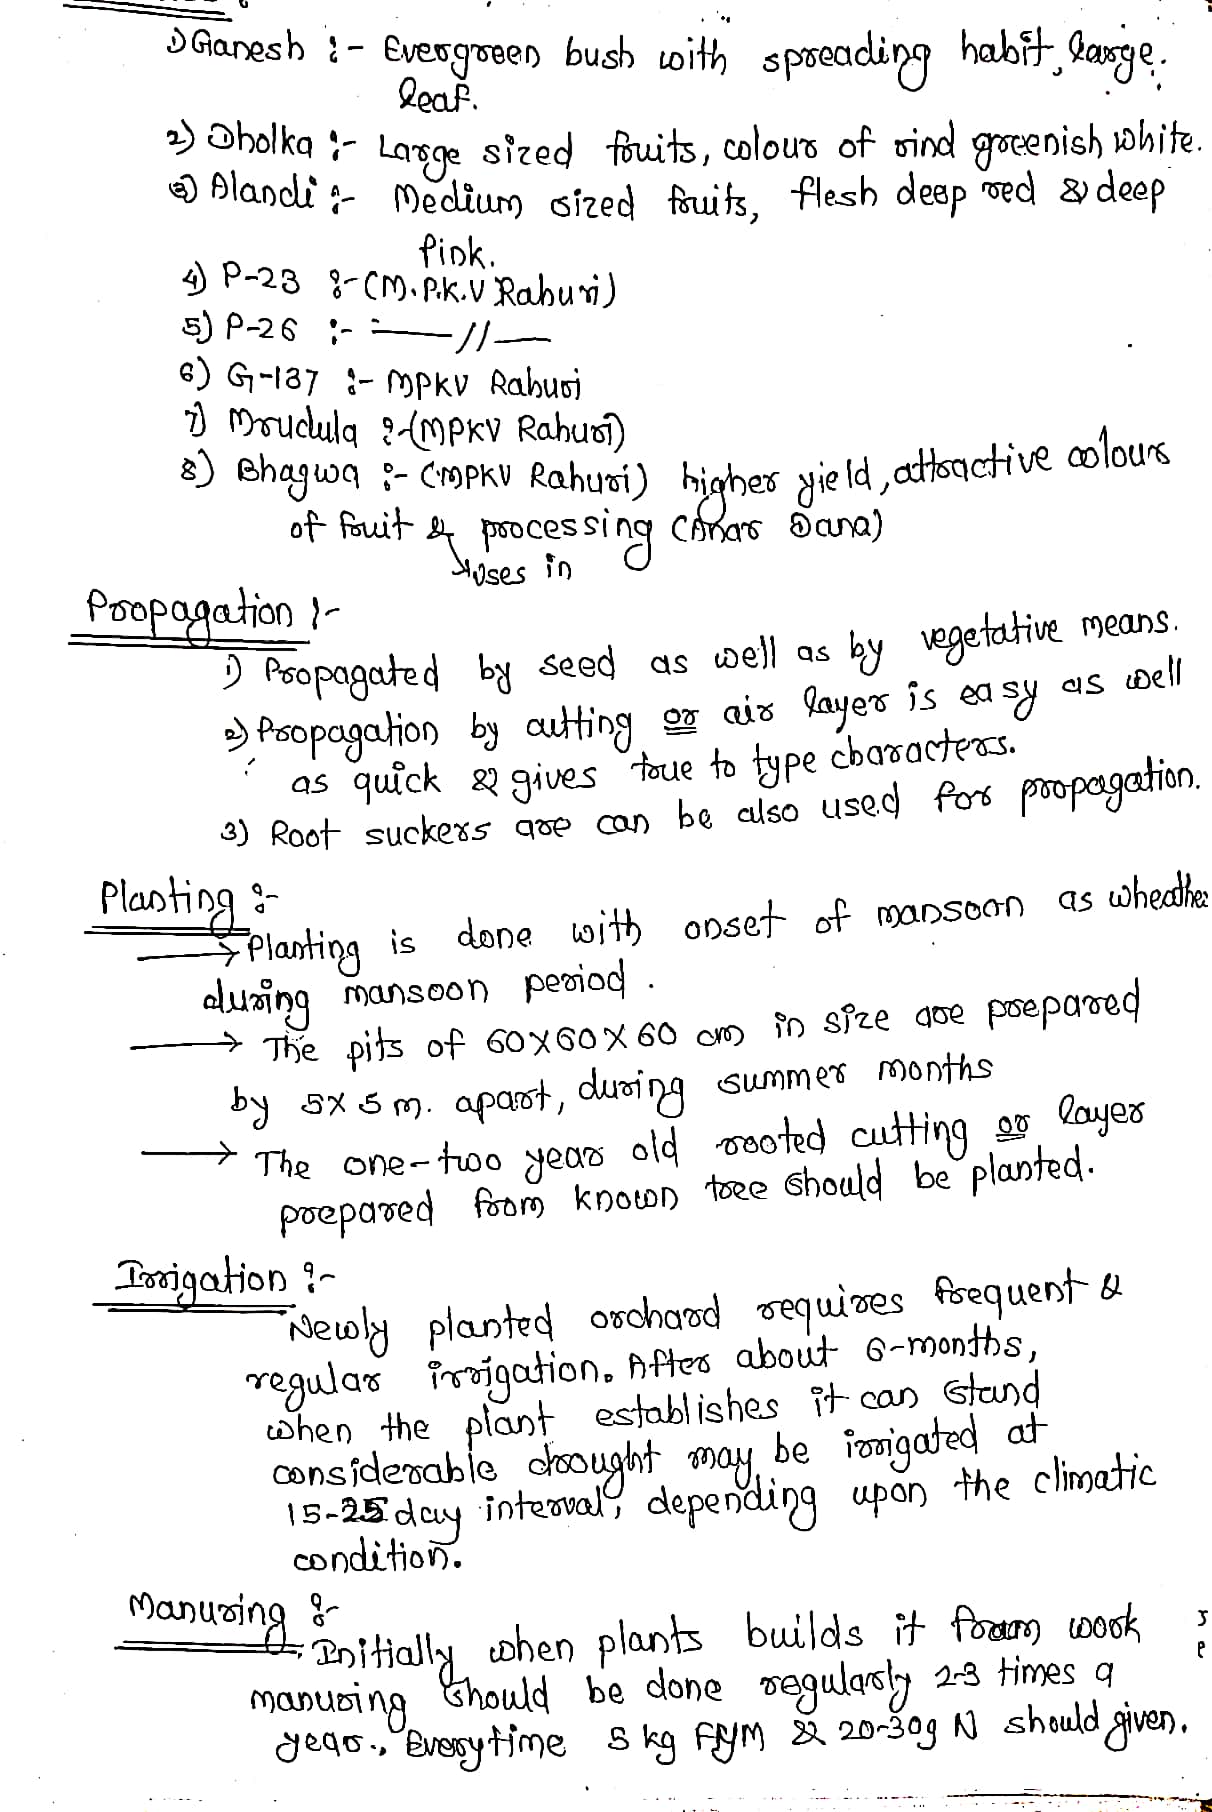 1) Ganesh :- Evergreen bush with spreading habit, large
leaf.
2) Dholka :- Large sized fruits, colour of rind greenish white.
3) Alandi :- Medium sized fruits, flesh deep red & deep
pink.
4) P-23 :- (M.P.K.V Rahuri)
5) P-26 :- —//—
6) G-137 :- MPKV Rahuri
7) Mrudula :- (MPKV Rahuri)
8) Bhagwa :- (MPKV Rahuri) higher yield, attractive colours
of fruit & processing (Anar Dana)
uses in
Propagation :-
1) Propagated by seed as well as by vegetative means.
2) Propagation by cutting or air layer is easy as well
as quick & gives true to type characters.
3) Root suckers are can be also used for propagation.
Planting :-
→ Planting is done with onset of mansoon as wheather
during mansoon period.
→ The pits of 60X60X60 cm in size are prepared
by 5X5 m. apart, during summer months
→ The one-two year old rooted cutting or layer
prepared from known tree should be planted.
Irrigation :-
Newly planted orchard requires frequent &
regular irrigation. After about 6-months,
when the plant establishes it can stand
considerable drought may be irrigated at
15-25 day interval, depending upon the climatic
condition.
Manuring :-
Initially when plants builds it work
manuring should be done regularly 2-3 times a
year., Everytime 5 kg FYM & 20-30g N should given.